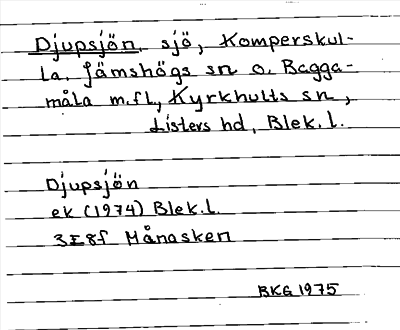 Djupsjön, sjö, Komperskul-
la, Jämshögs sn o. Bagga-
måla m.fl., Kyrkhults sn,
Listers hd, Blek.l.
Djupsjön
ek (1974) Blek.l.
3E8f Månasken
BKG 1975